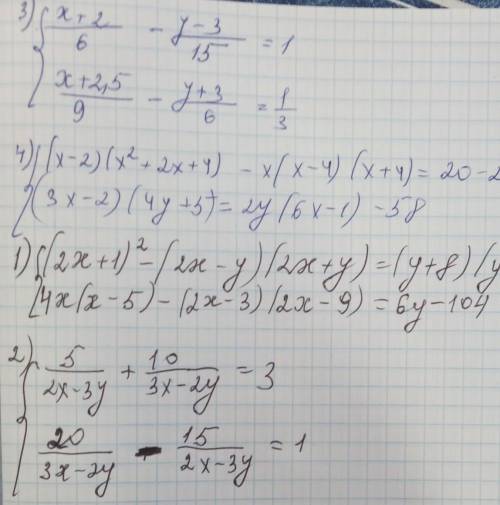 3) { (x+2)/6 - (y-3)/15 = 1
(x+2,5)/9 - (y+3)/6 = 1/3
4) { (x-2)(x²+2x+4) - x(x-4)(x+4) = 20-2
(3x-2)(4y+5) = 2y(6x-1) - 58
1) { (2x+1)² - (2x-y)(2x+y) = (y+8)(y
4x(x-5) - (2x-3)(2x-9) = 6y-104
2) { 5/(2x-3y) + 10/(3x-2y) = 3
20/(3x-2y) - 15/(2x-3y) = 1